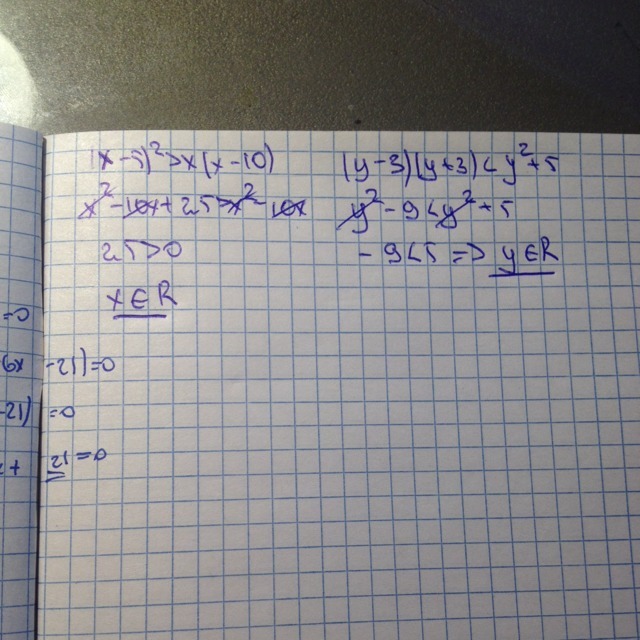 (x-5)²>x(x-10)
x²-10x+25>x²-10x
25>0
x∈R
(y-3)(y+3)<y²+5
y²-9<y²+5
-9<5 => y∈R
=0
6x -21)=0
-21) =0
+ 21=0